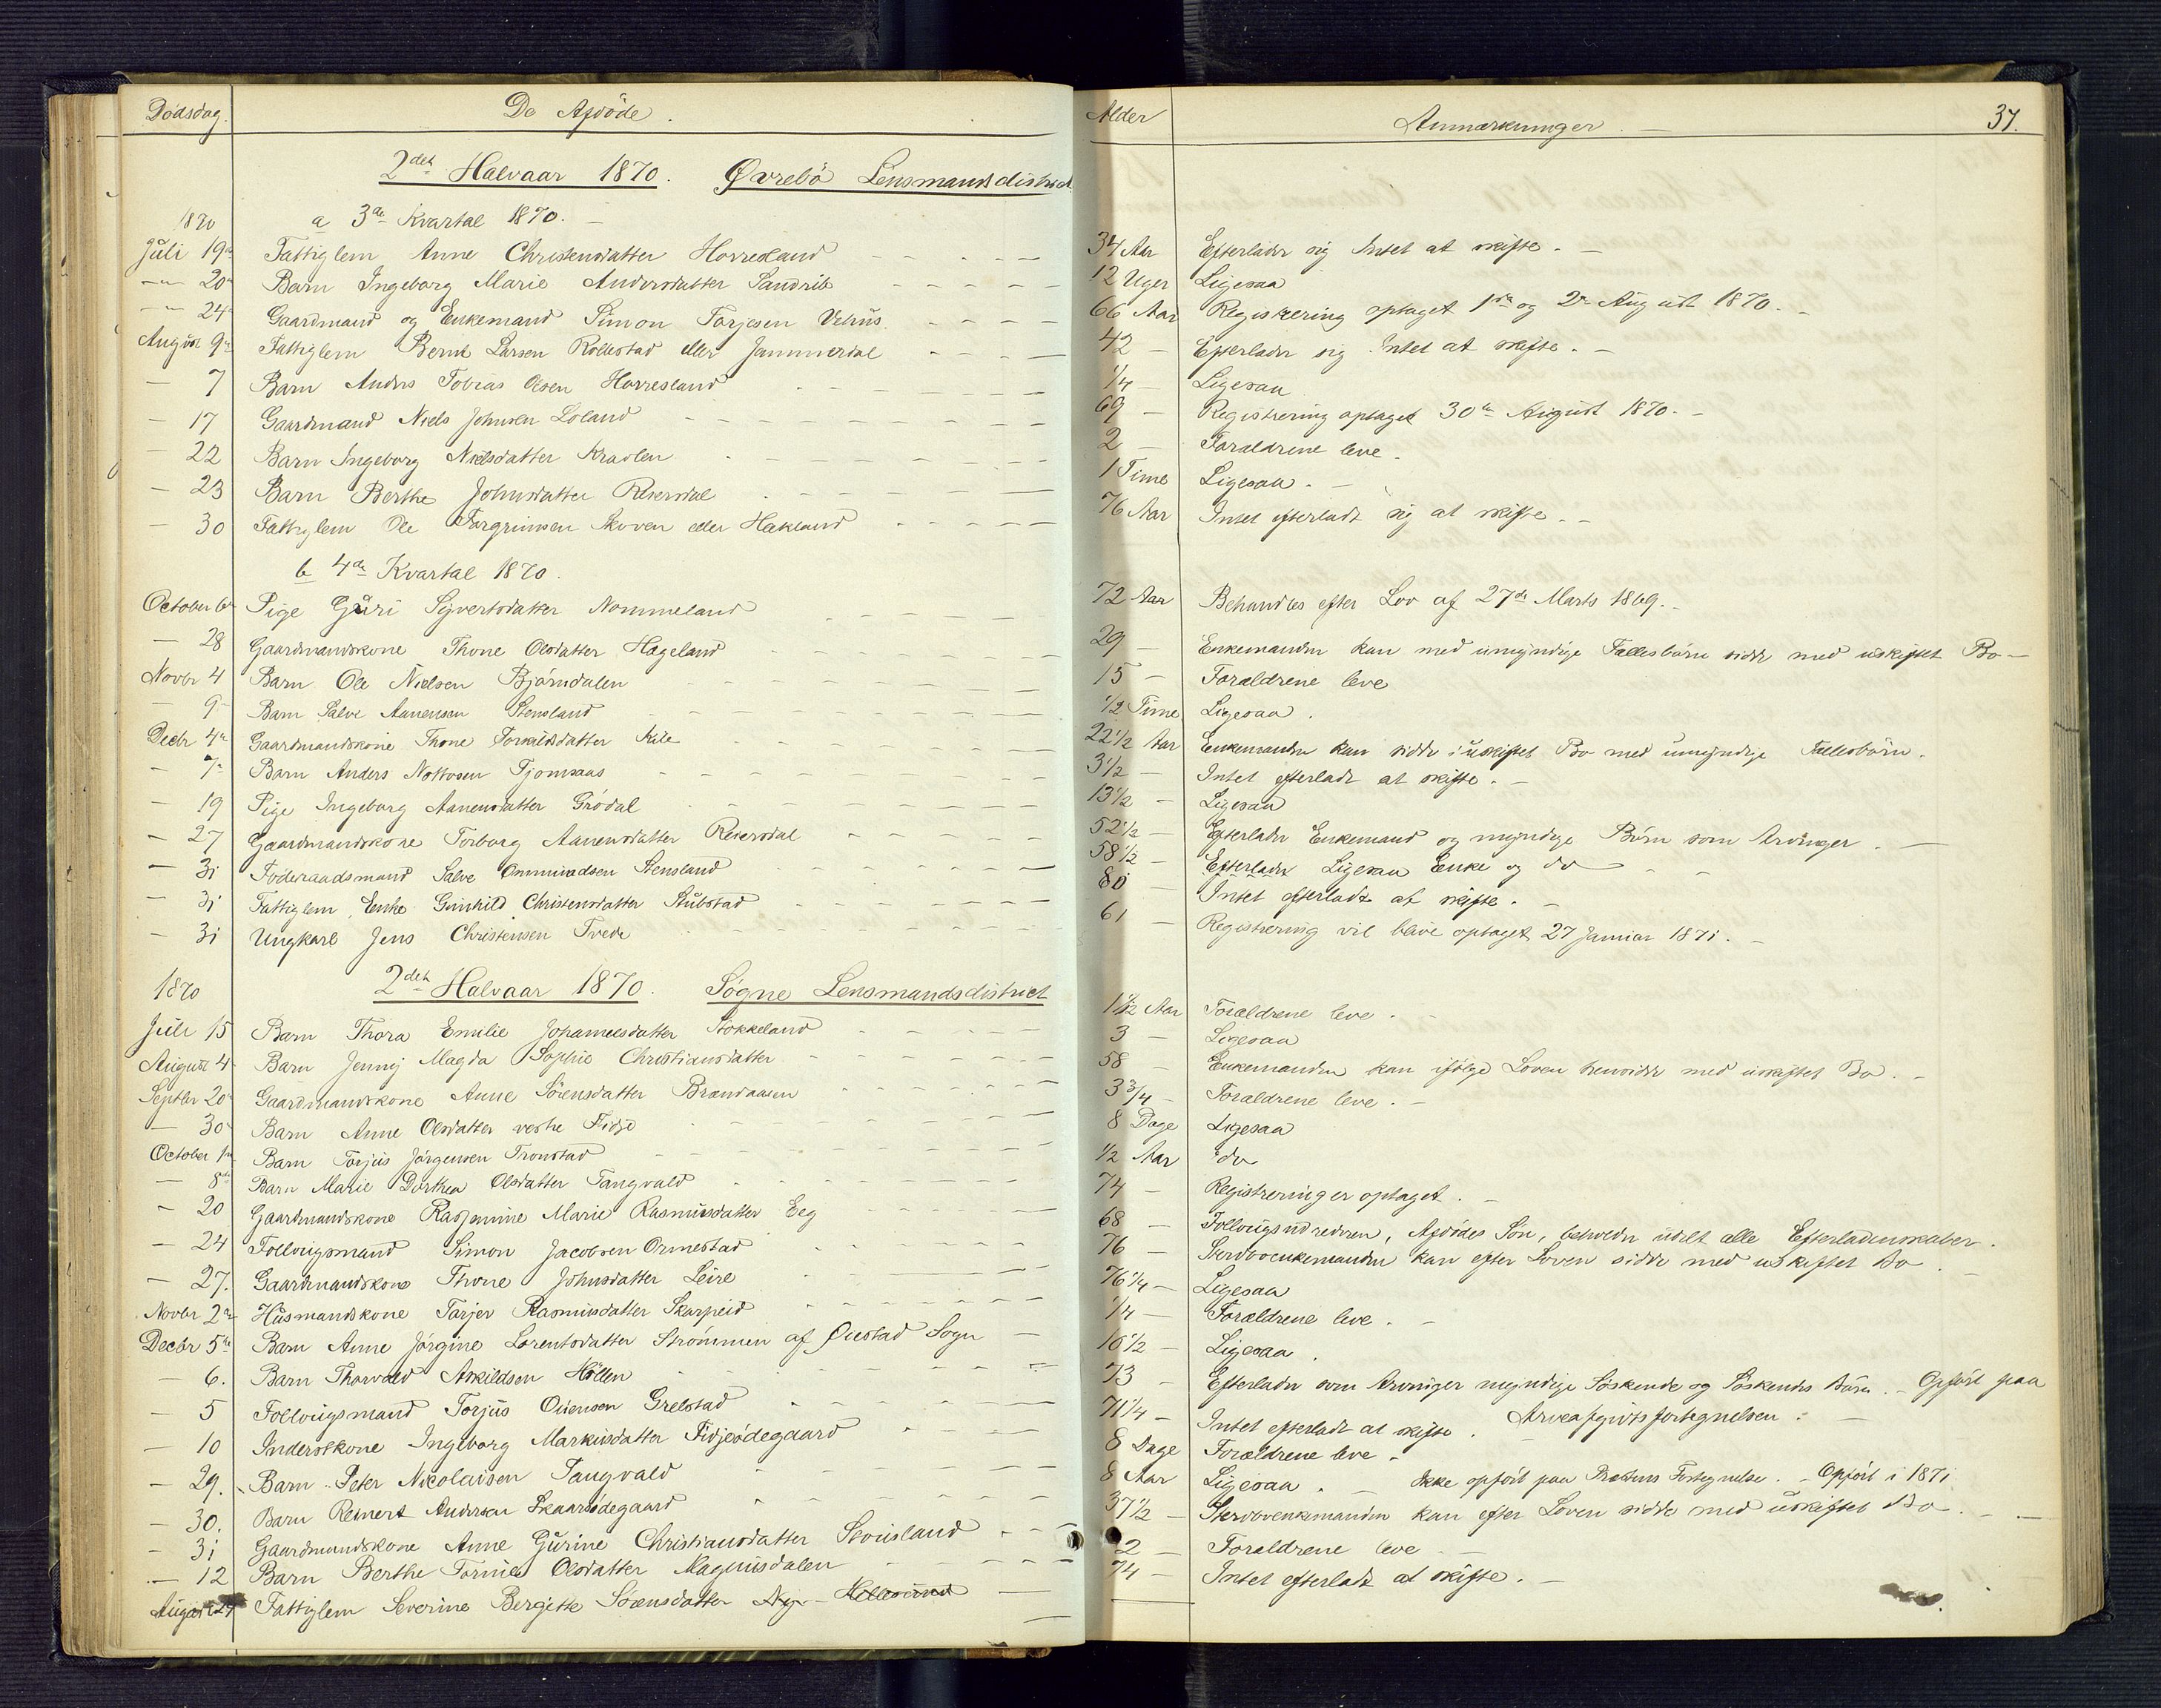 Dødsdag. De Afdøde. Alder Anmærkninger. — 37.
2det Halvaar 1870. Øvrebö Lensmandsdistrict
1870 a 3de Kvartal 1870. —
Juli 19de Fattiglem Anne Christensdatter Horresland 34 Aar Efterlader sig Intet at skifte. —
— 20 Barn Ingeborg Marie Andersdatter Sandrib 12 Uger Ligesaa
— 24 Gaardmand og Enkemand Simon Torjesen Vehus 66 Aar Registrering optaget 1ste og 2den August 1870. —
August 9de Fattiglem Bernt Larsen Rollestad eller Jammerdal 42 — Efterlader sig Intet at skifte. —
— 7 Barn Anders Tobias Olsen Horresland 1/4 — Ligesaa
— 17 Gaardmand Niels Johnsen Loland 69 — Registrering optaget 30te August 1870. —
— 22 Barn Ingeborg Nielsdatter Kravlen 2 — Forældrene leve.
— 23 Barn Berthe Johnsdatter Reiersdal 1 Time Ligesaa. —
— 30 Fattiglem Ole Torgrimsen Skoven eller Hækland 76 Aar Intet efterladt sig at skifte. —
b 4de Kvartal 1870.
October 6te Pige Guri Syvertsdatter Nommeland 72 Aar Behandles efter Lov af 27de Marts 1869. —
— 28 Gaardmandskone Thone Olsdatter Hægeland 29 — Enkemanden kan med umyndige Fællesbörn sidde med uskiftet Bo —
Novbr 4 Barn Ole Nielsen Bjørndalen 15 — Forældrene leve
— 9 Barn Salve Aanensen Stensland 1/2 Time Ligesaa.
Decbr 4de Gaardmandskone Thone Torkildsdatter Kile 22 1/2 Aar Enkemanden kan sidde i uskiftet Bo med umyndige Fællesbörn.
— 7 Barn Anders Nottosen Tjomsaas 3 1/2 — Intet efterladt at skifte. —
— 19 Pige Ingeborg Aanensdatter Grödal 13 1/2 — Ligesaa
— 27 Gaardmandskone Torborg Aanensdatter Reiersdal 52 1/2 — Efterlader Enkemand og myndige Börn som Arvinger. —
— 31 Föderaadsmand Salve Ommundsen Stensland 58 1/2 — Efterlader Ligesaa Enke og do —
— 31 Fattiglem, Enke Gunhild Christensdatter Stubstad 80 — Intet efterladt at skifte. —
— 31 Ungkarl Jens Christensen Tvede 61 — Registrering vil blive optaget 27 Januar 1871. —
1870 2det Halvaar 1870. Søgne Lensmandsdistrict
Juli 15 Barn Thora Emilie Johannesdatter Stokkeland 1 1/2 Aar Forældrene leve. —
August 4 Barn Jenny Magda Sophie Christiansdatter 3 — Ligesaa
Septbr 20 Gaardmandskone Anne Sørensdatter Brandaasen 58 — Enkemanden kan ifølge Loven hensidde med uskiftet Bo. —
— 30 Barn Anne Olsdatter vestre Fidje 3 3/4 — Forældrene leve. —
October 1ste Barn Torjus Jörgensen Tronstad 8 Dage Ligesaa
— 8de Barn Marie Dorthea Olsdatter Tangvald 1/2 Aar do
— 20 Gaardmandskone Rasmine Marie Rasmusdatter Eeg 74 — Registrering er optaget. —
— 24 Follougsmand Simon Jacobsen Ormestad 68 — Follougsudrederen, Afdødes Søn, beholder udelt alle Efterladenskaber.
— 27. Gaardmandskone Thone Johnsdatter Leire 76 — Stervboenkemanden kan efter Loven sidde med uskiftet Bo. —
Novbr 2den Husmandskone Tarjer Rasmusdatter Skarpeid 76 1/4 — Ligesaa
Decbr 5te Barn Anne Jörgine Lorentsdatter Strömmen af Oddestad Sogn — 1/4 — Forældrene leve. —
— 6. Barn Thorvald Askildsen Höllen 10 1/2 — Ligesaa.
— 5 Follougsmand Torjus Ouensen Grelstad 73 — Efterlader som Arvinger myndige Söskende og Söskendes Börn. — Opfört paa
Arveafgiftsfortegnelsen. —
— 10 Inderstkone Ingeborg Markusdatter Fidjeödegaard 71 1/4 — Intet efterladt at skifte.
— 29. Barn Peter Nicolaisen Tangvald 8 Dage Forældrene leve. —
— 30. Barn Reinert Andersen Skaarsödegaard 8 Aar Ligesaa. — Ikke opfört paa Præstens Fortegnelse. — Opfört i 1871
— 31 Gaardmandskone Anne Gurine Christiansdatter Stousland 37 1/2 — Stervboenkemanden kan efter Loven sidde med uskiftet Bo. —
— 12 Barn Berthe Tomine Olsdatter Magnusdalen 2 — Forældrene leve —
August 24 Fattiglem Severine Bergitte Sörensdatter Ny-Hellesund 74 — Intet efterladt at skifte. —